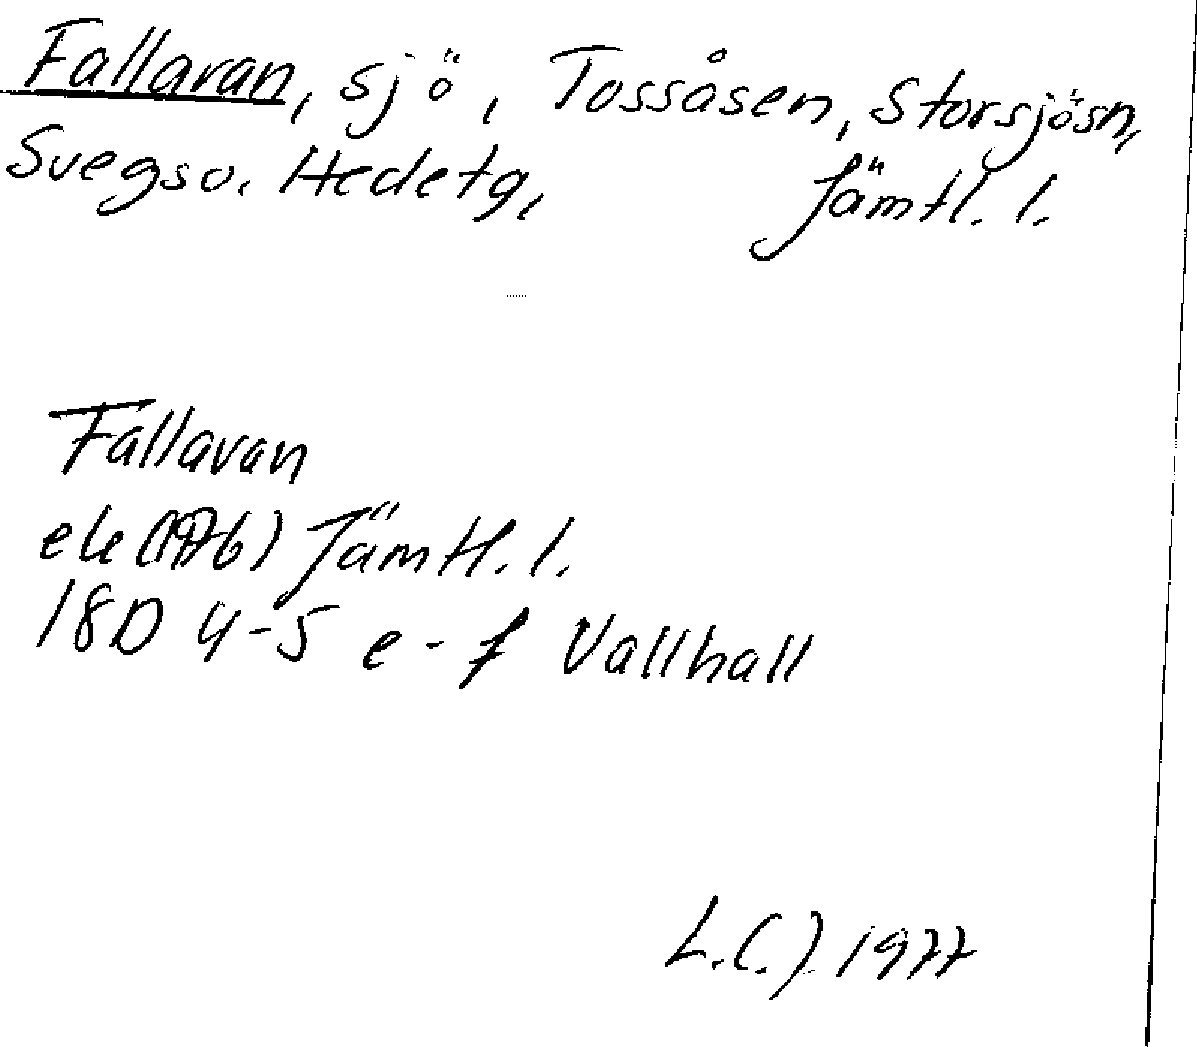 Fallavan, sjö, Tossåsen, Storsjösn,
Svegso. Hedetg, Jämtl. l.
Fallavan
ek (1976) Jämtl. l.
18D 4-5 e-f Vallhall
L.C.J. 1977